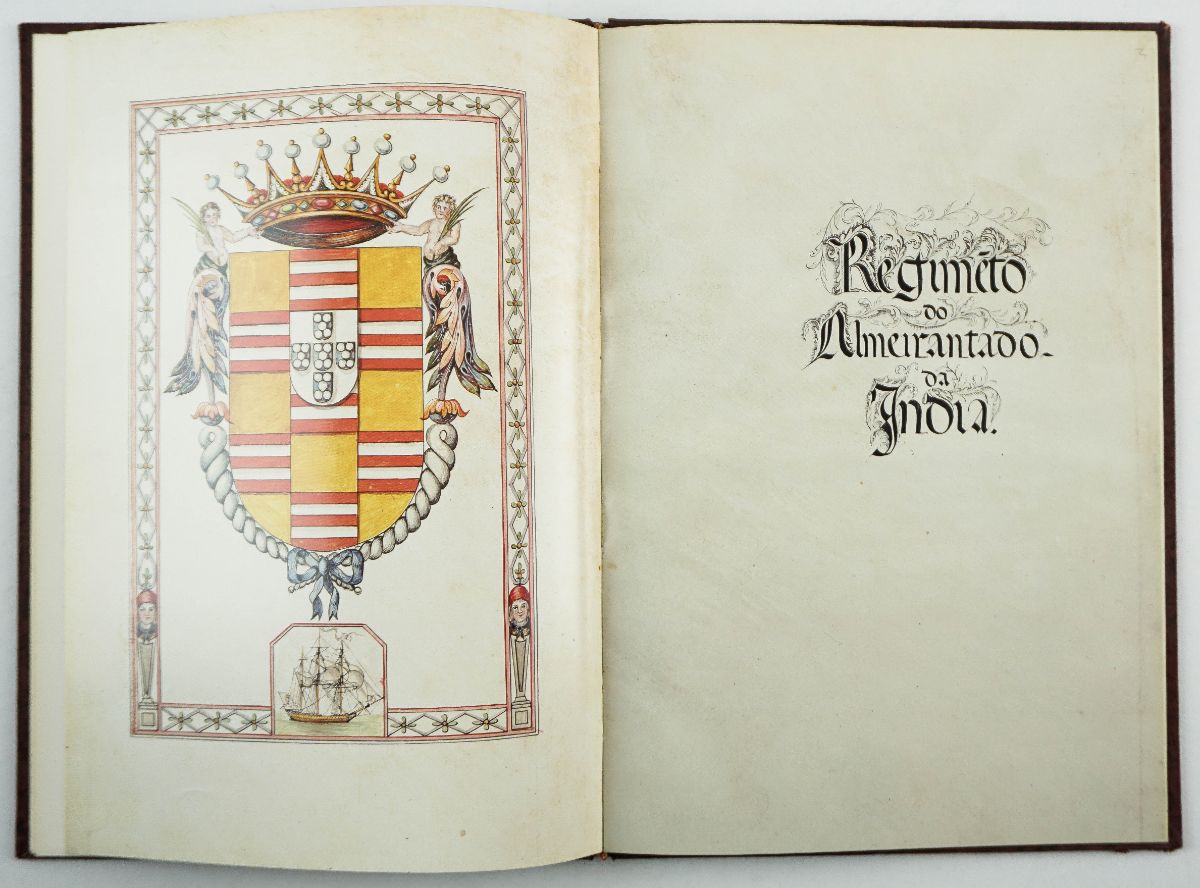 Regimẽto
do
Almeirantado
da
India.